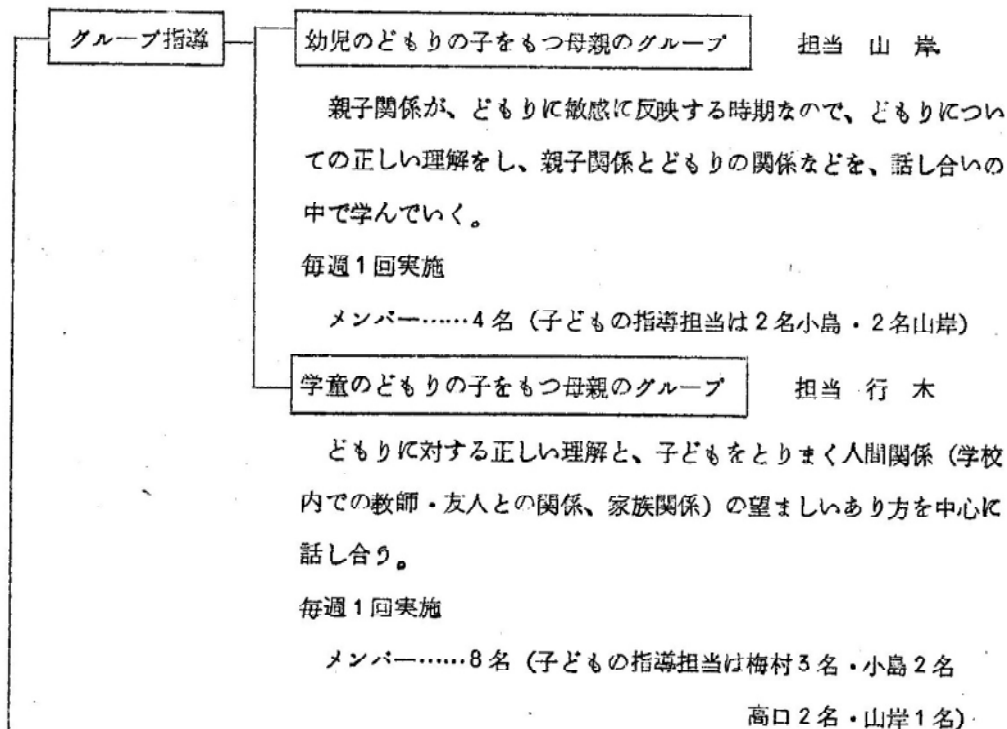 グループ指導
幼児のどもりの子をもつ母親のグループ 担当 山岸
親子関係が、どもりに敏感に反映する時期なので、どもりについ
ての正しい理解をし、親子関係とどもりの関係などを、話し合いの
中で学んでいく。
毎週1回実施
メンバー……4名(子どもの指導担当は2名小島・2名山岸)
学童のどもりの子をもつ母親のグループ 担当 行木
どもりに対する正しい理解と、子どもをとりまく人間関係(学校
内での教師・友人との関係、家族関係)の望ましいあり方を中心に
話し合う。
毎週1回実施
メンバー……8名(子どもの指導担当は梅村3名・小島2名
高口2名・山岸1名)